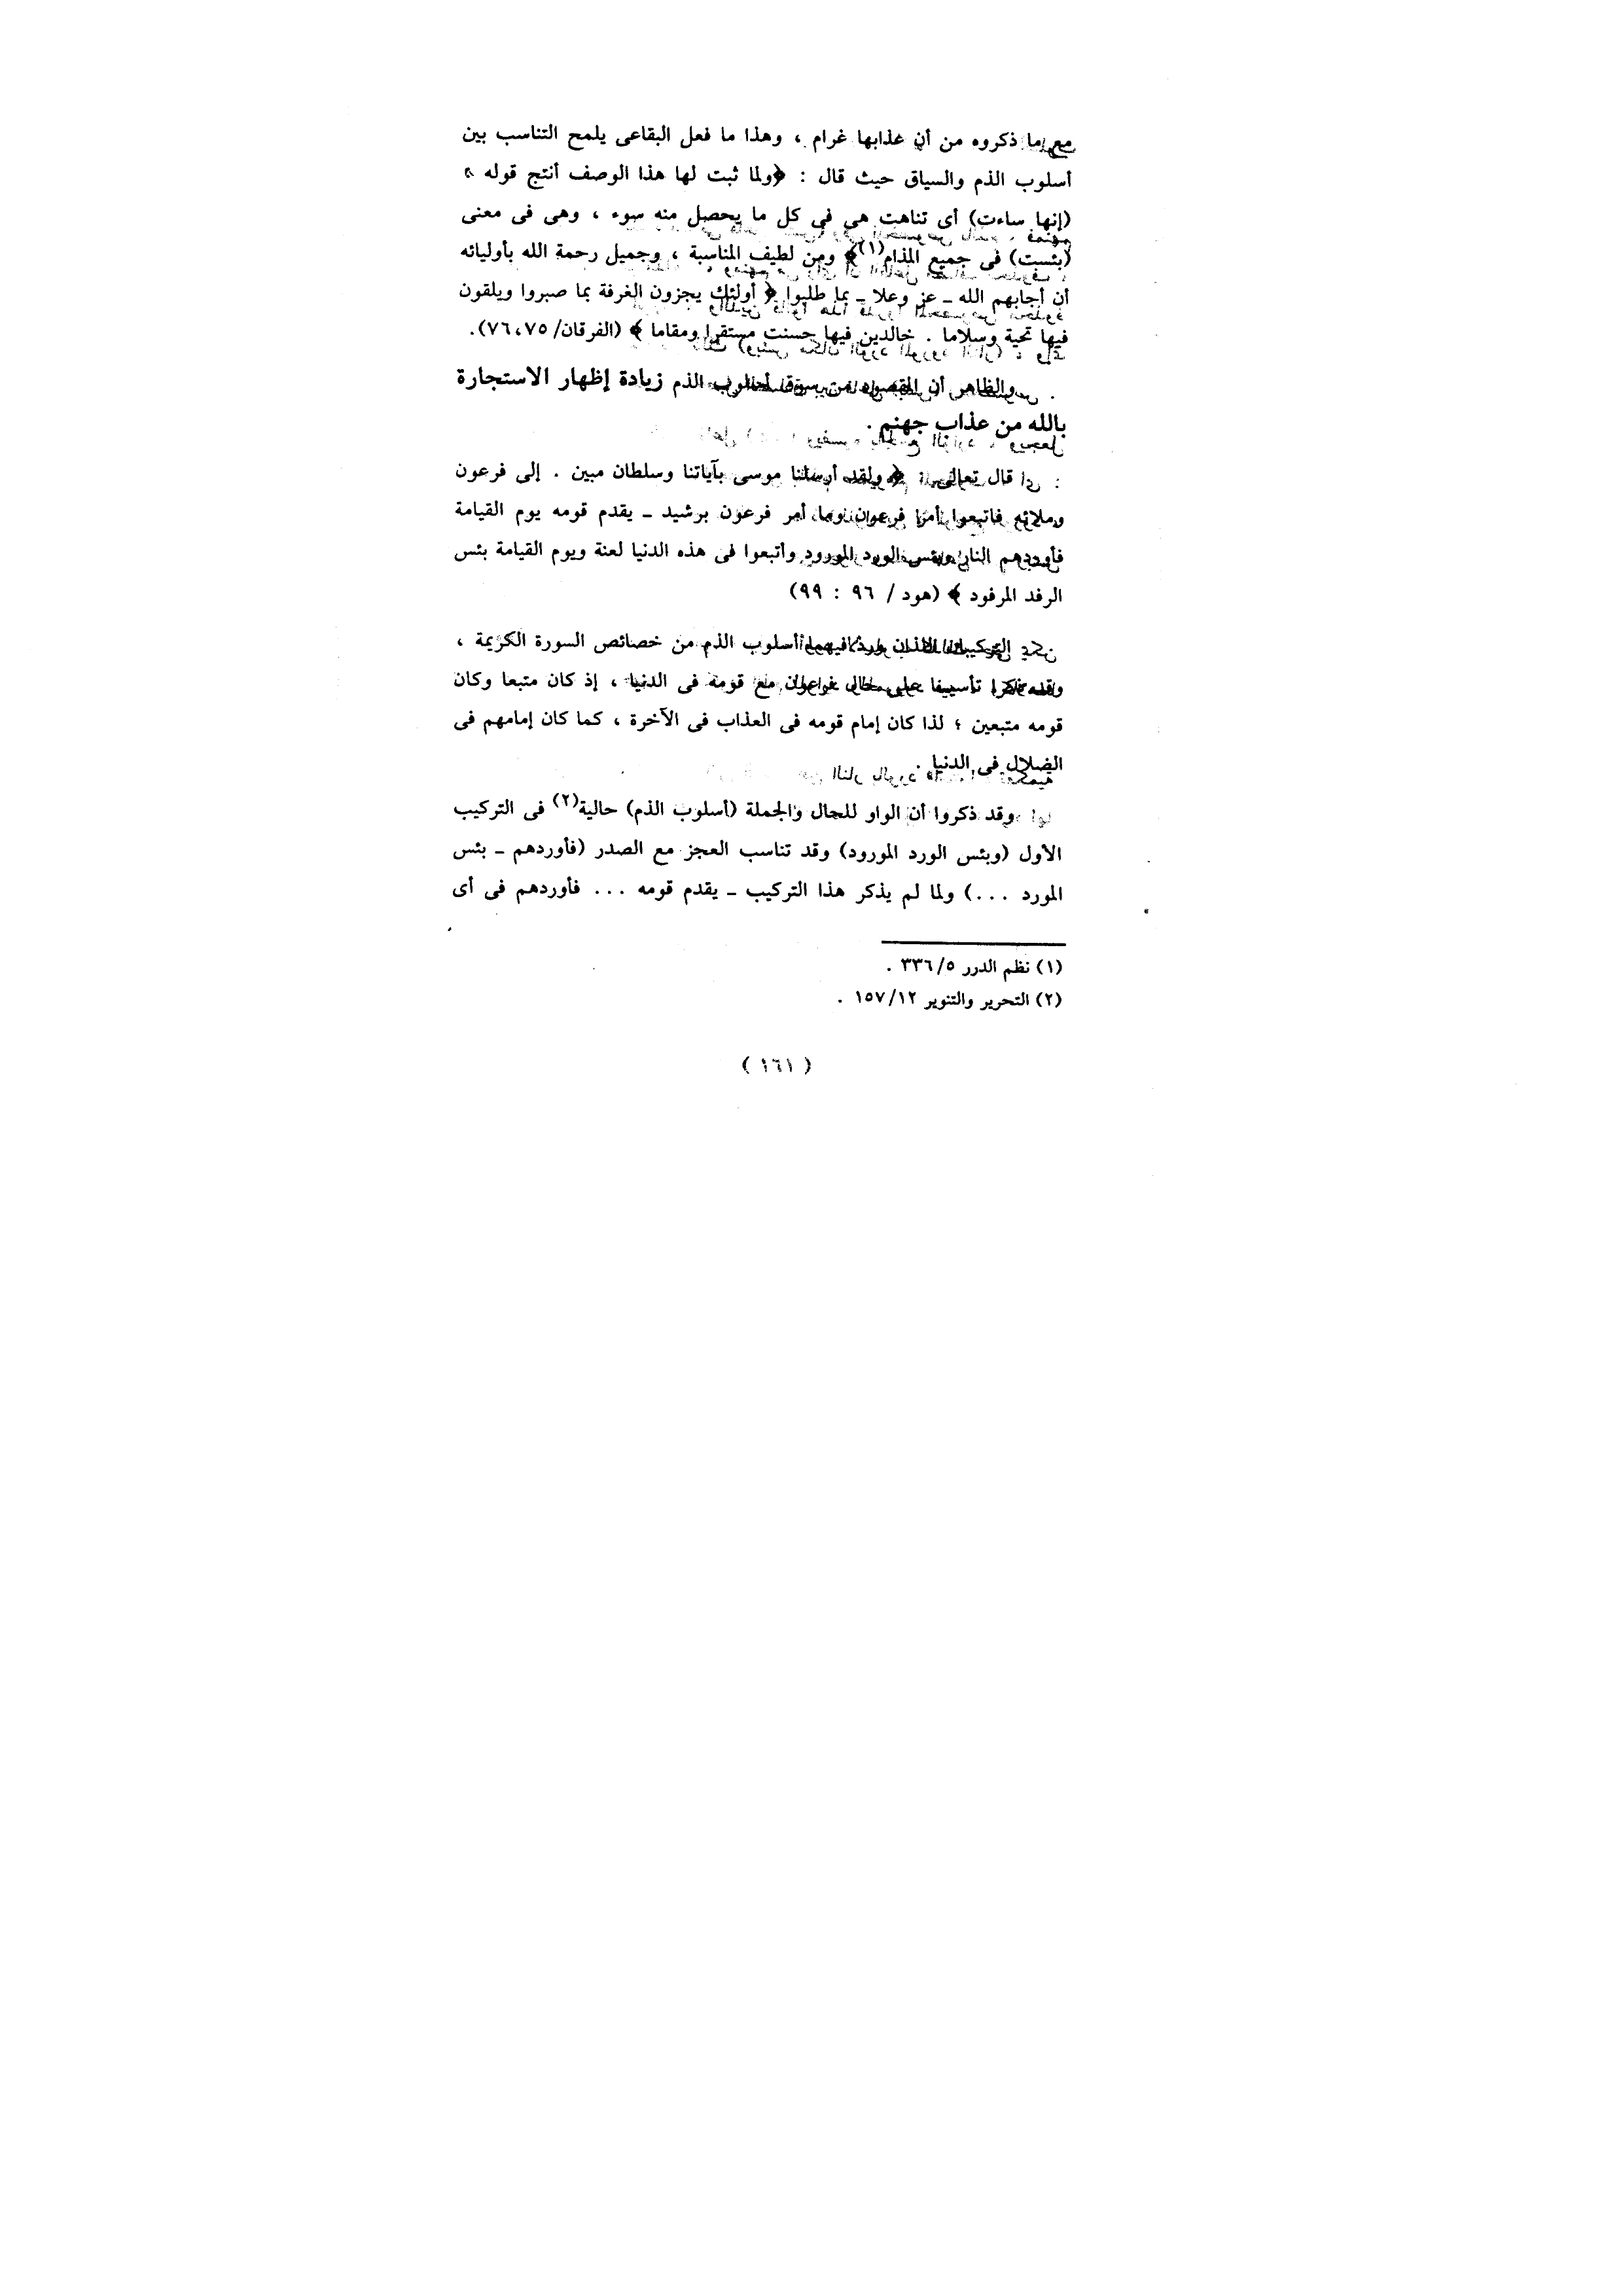 مع ما ذكروه من أن عذابها غرام ، وهذا ما فعل البقاعى يلمح التناسب بين
أسلوب الذم والسياق حيث قال : ﴿ولما ثبت لها هذا الوصف أنتج قوله »
(إنها ساءت) أى تناهت هى فى كل ما يحصل منه سوء ، وهى فى معنى
(بئست) فى جميع المذام(١)﴾ ومن لطيف المناسبة ، وجميل رحمة الله بأوليائه
أن أجابهم الله ـ عز وعلا ـ بما طلبوا ﴿ أولئك يجزون الغرفة بما صبروا ويلقون
فيها تحية وسلاما . خالدين فيها حسنت مستقرا ومقاما ﴾ (الفرقان/ ٧٥،٧٦).
والظاهر أن المقصود من سوق أسلوب الذم زيادة إظهار الاستجارة
بالله من عذاب جهنم .
قال تعالى : ﴿ ولقد أرسلنا موسى بآياتنا وسلطان مبين . إلى فرعون
وملائه فاتبعوا أمر فرعون وما أمر فرعون برشيد ـ يقدم قومه يوم القيامة
فأوردهم النار وبئس الورد المورود وأتبعوا فى هذه الدنيا لعنة ويوم القيامة بئس
الرفد المرفود ﴾ (هود / ٩٦ : ٩٩)
التركيبان اللذان ورد فيهما أسلوب الذم من خصائص السورة الكريمة ،
وقد ذكرا تأسيسا على حال فرعون مع قومه فى الدنيا ، إذ كان متبعا وكان
قومه متبعين ؛ لذا كان إمام قومه فى العذاب فى الآخرة ، كما كان إمامهم فى
الضلال فى الدنيا .
وقد ذكروا أن الواو للحال والجملة (أسلوب الذم) حالية(٢) فى التركيب
الأول (وبئس الورد المورود) وقد تناسب العجز مع الصدر (فأوردهم ـ بئس
المورد ...) ولما لم يذكر هذا التركيب ـ يقدم قومه ... فأوردهم فى أى
(١) نظم الدرر ٣٣٦/٥ .
(٢) التحرير والتنوير ١٥٧/١٢ .
( ١٦١ )